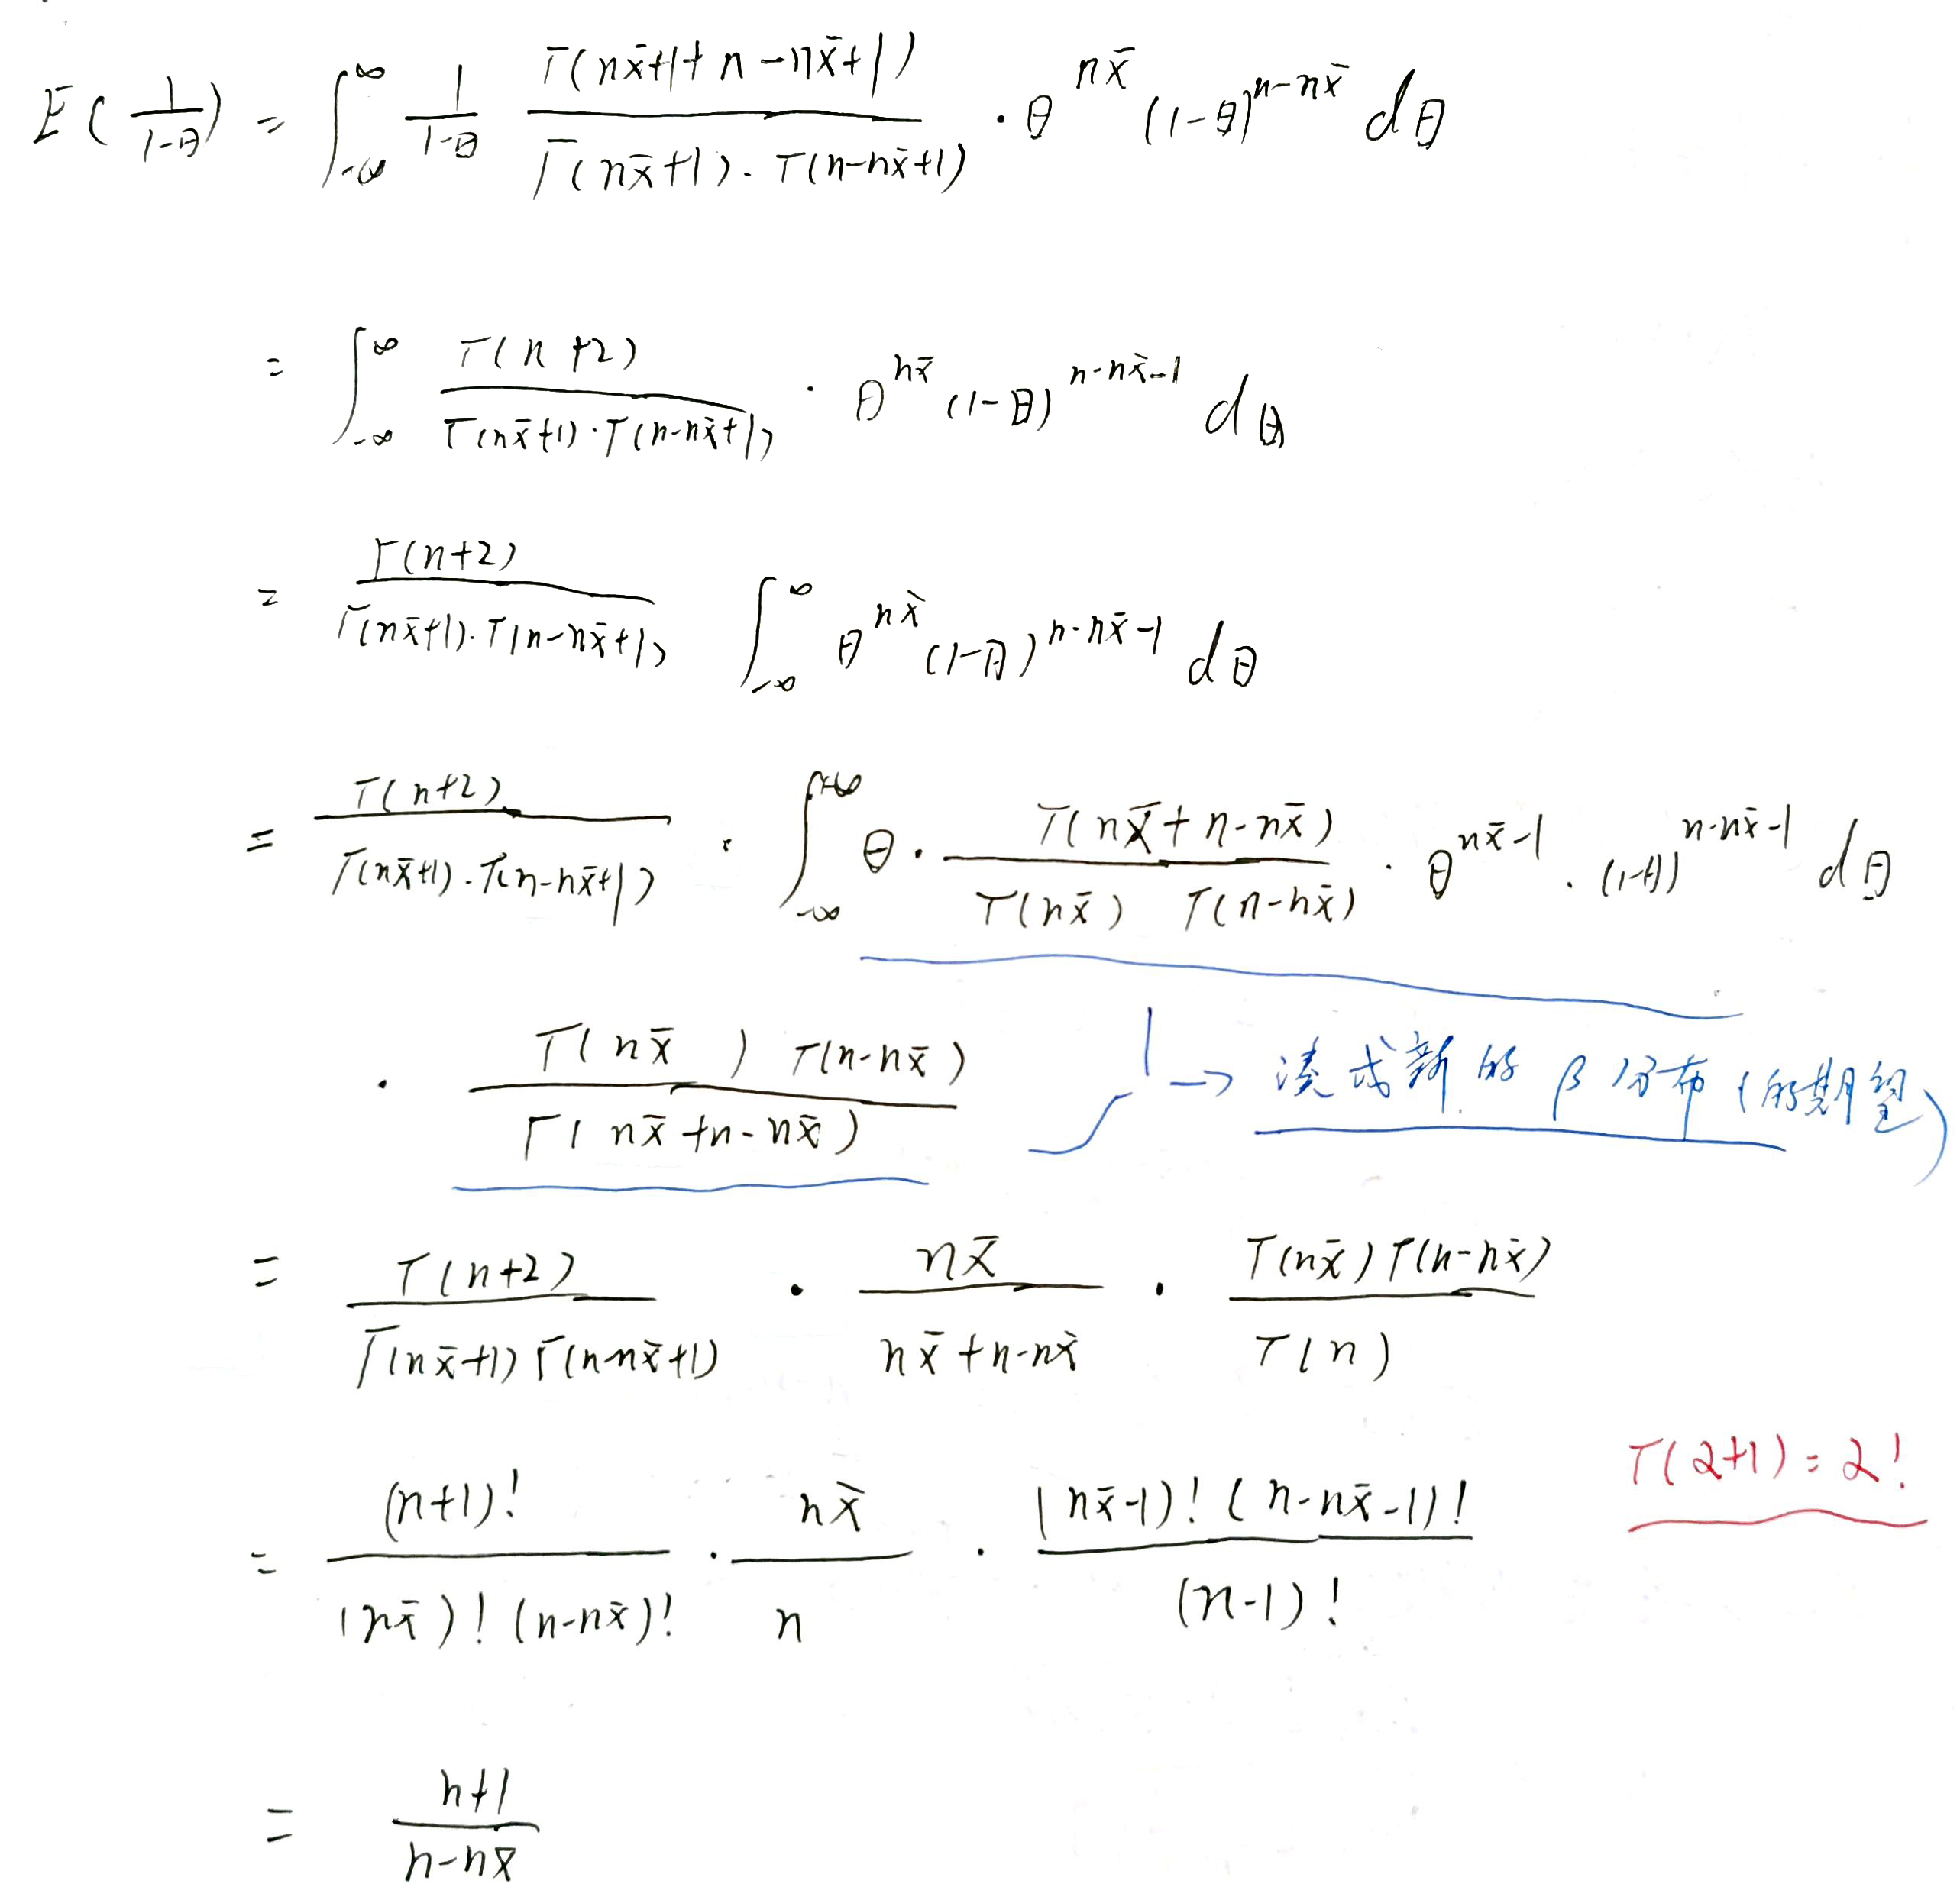 E(1/(1-θ)) = ∫_{-∞}^{∞} 1/(1-θ) Γ(nx̄+1+n-nx̄+1)/(Γ(nx̄+1)·Γ(n-nx̄+1)) · θ^{nx̄} (1-θ)^{n-nx̄} dθ
= ∫_{-∞}^{∞} Γ(n+2)/(Γ(nx̄+1)·Γ(n-nx̄+1)) · θ^{nx̄} (1-θ)^{n-nx̄-1} dθ
= Γ(n+2)/(Γ(nx̄+1)·Γ(n-nx̄+1)) ∫_{-∞}^{∞} θ^{nx̄} (1-θ)^{n-nx̄-1} dθ
= Γ(n+2)/(Γ(nx̄+1)·Γ(n-nx̄+1)) · ∫_{-∞}^{+∞} θ · Γ(nx̄+n-nx̄)/(Γ(nx̄) Γ(n-nx̄)) · θ^{nx̄-1} · (1-θ)^{n-nx̄-1} dθ
· Γ(nx̄) Γ(n-nx̄)/Γ(nx̄+n-nx̄) → 凑成新的 β 分布 (的期望)
= Γ(n+2)/(Γ(nx̄+1) Γ(n-nx̄+1)) · nx̄/(nx̄+n-nx̄) · Γ(nx̄) Γ(n-nx̄)/Γ(n)
Γ(α+1) = α!
= (n+1)!/((nx̄)! (n-nx̄)!) · nx̄/n · (nx̄-1)! (n-nx̄-1)!/(n-1)!
= (n+1)/(n-nx̄)